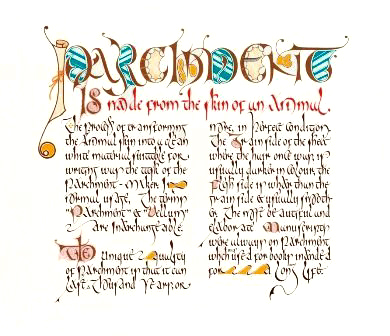 PARCHMENT
IS made from the skin of an Animal.
The process of transforming
the Animal skin into a clean
white material suitable for
writing was the task of the
Parchment-Maker. In
normal usage, The terms
"Parchment" & "Vellum"
are interchangeable.
The Unique Quality
of Parchment is that it can
Last a Thousand Years or
more, in Perfect Condition.
The Grain side of the sheet
where the hair once was, is
usually darker in colour, the
Flesh side is whiter than the
grain side & usually smooth-
er. The most beautiful and
elaborate Manuscripts
were always on Parchment
which used for books intended
for a Long Life.